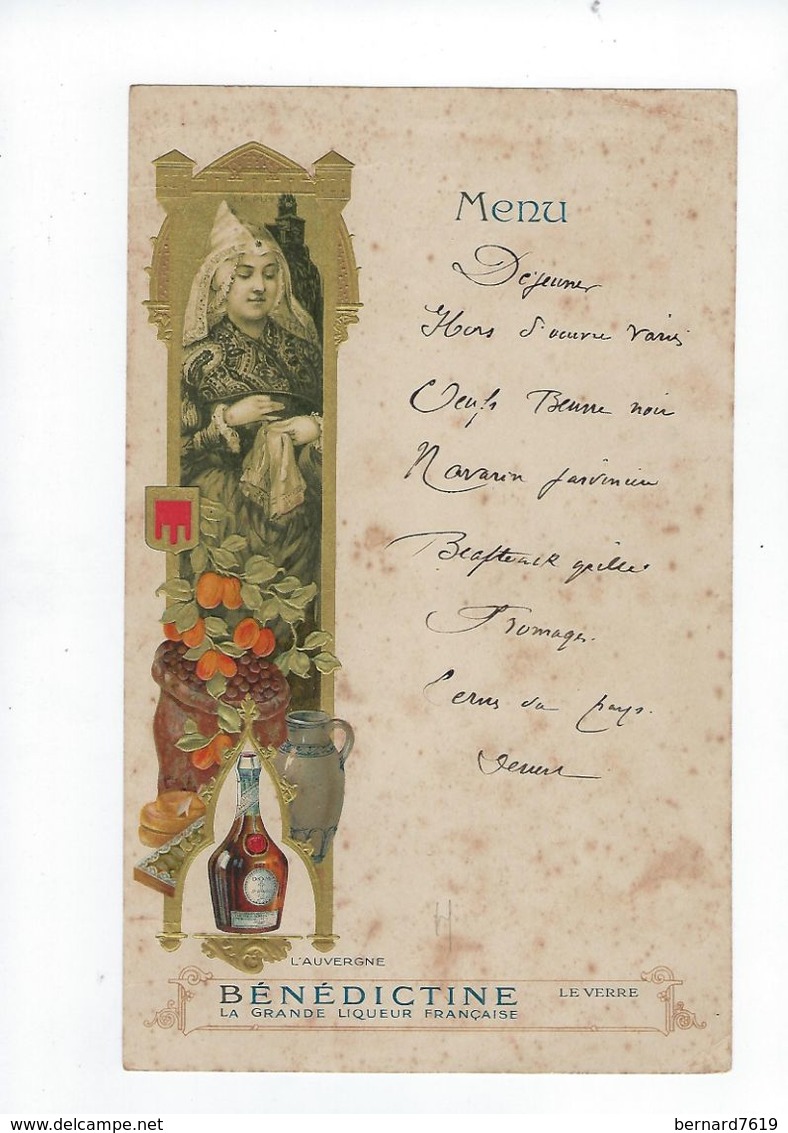 Menu
Déjeuner
Hors d'oeuvre variés
Oeufs Beurre noir
Navarin jardinier
Beafteack grillé
Fromages.
du pays.
L'AUVERGNE
BÉNÉDICTINE
LE VERRE
LA GRANDE LIQUEUR FRANÇAISE
delcampe.net
bernard7619